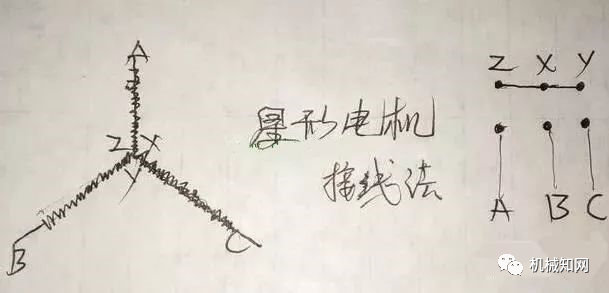 A
Z X
Y
B
C
星形电机
接线法
Z X Y
A B C
机械知网